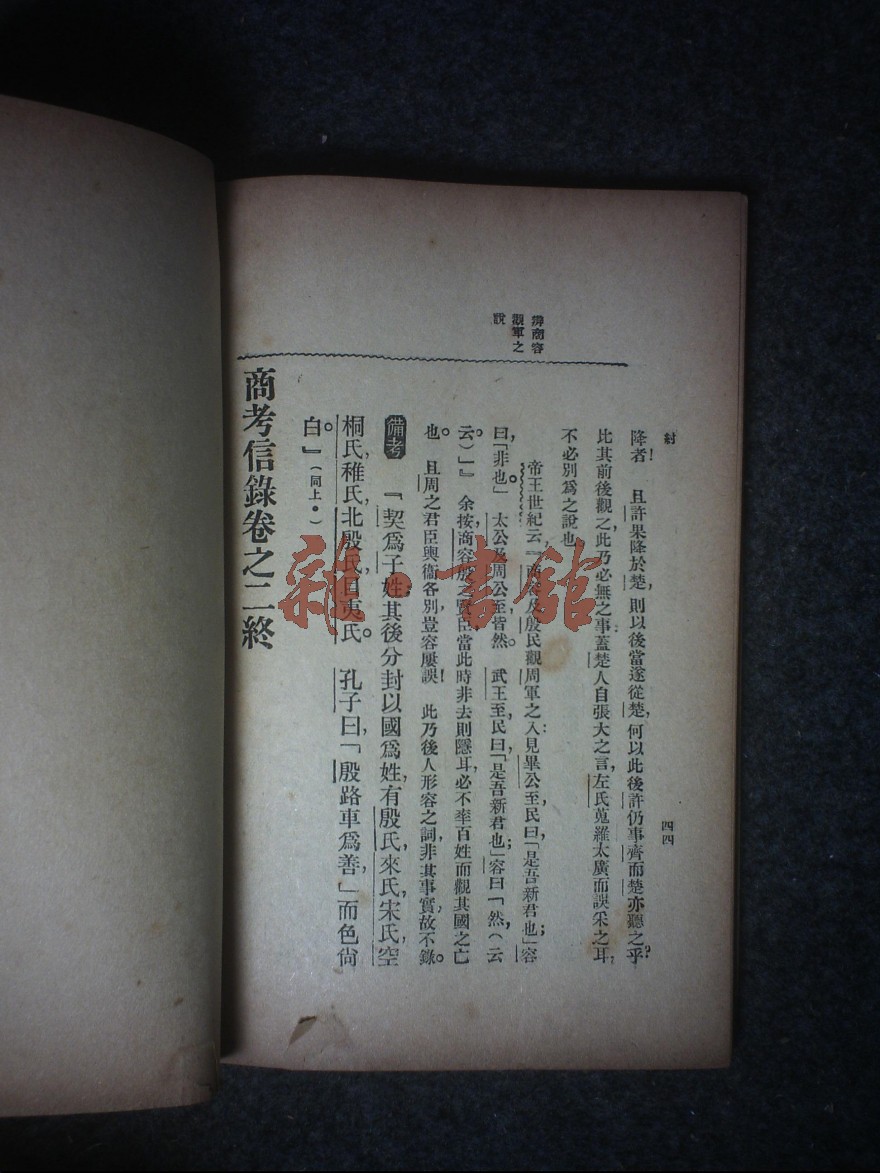 紂
四四
降者！　且許果降於楚，則以後當遂從楚，何以此後許仍事齊而楚亦聽之乎？
比其前後觀之，此乃必無之事，蓋楚人自張大之言，左氏蒐羅太廣而誤采之耳，
不必別爲之說也。
辨商容
觀軍之
說
帝王世紀云：『商容及殷民觀周軍之入，見畢公至，民曰：「是吾新君也；」容
曰，「非也。」　太公及周公至皆然。　武王至，民曰，「是吾新君也；」容曰「然，（云
云）。」』　余按，商容，殷之賢臣，當此時非去則隱耳，必不率百姓而觀其國之亡
也。　且周之君臣輿衞各別，豈容屢誤！　此乃後人形容之詞，非其事實，故不錄。
備考　「契爲子姓，其後分封，以國爲姓，有殷氏，來氏，宋氏，空
桐氏，稚氏，北殷氏，目夷氏。　孔子曰，「殷路車爲善，」而色尙
白。」（同上。）
商考信錄卷之二終
雜·書館